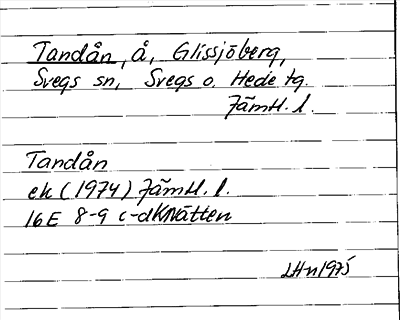 Tandån, å, Glissjöberg,
Svegs sn, Svegs o. Hede tg.
Jämtl. l.
Tandån
ek (1974) Jämtl. l.
16E 8-9 c-d Knätten
LHn 1975